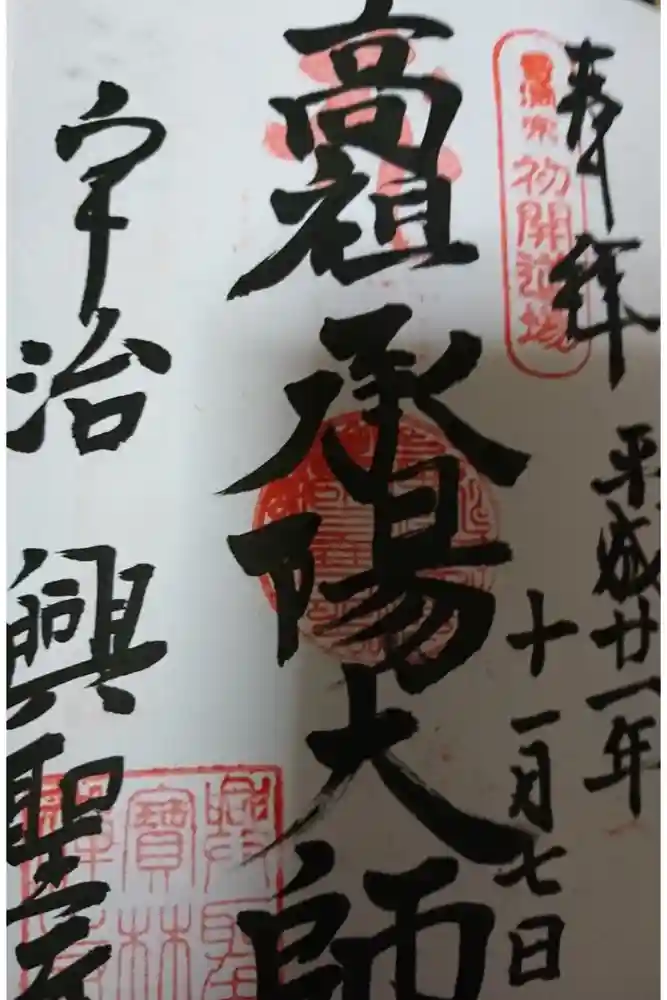 奉拝
平成廿一年
十一月七日
初開道場
高祖承陽大師
宇治 興聖寺
寶林